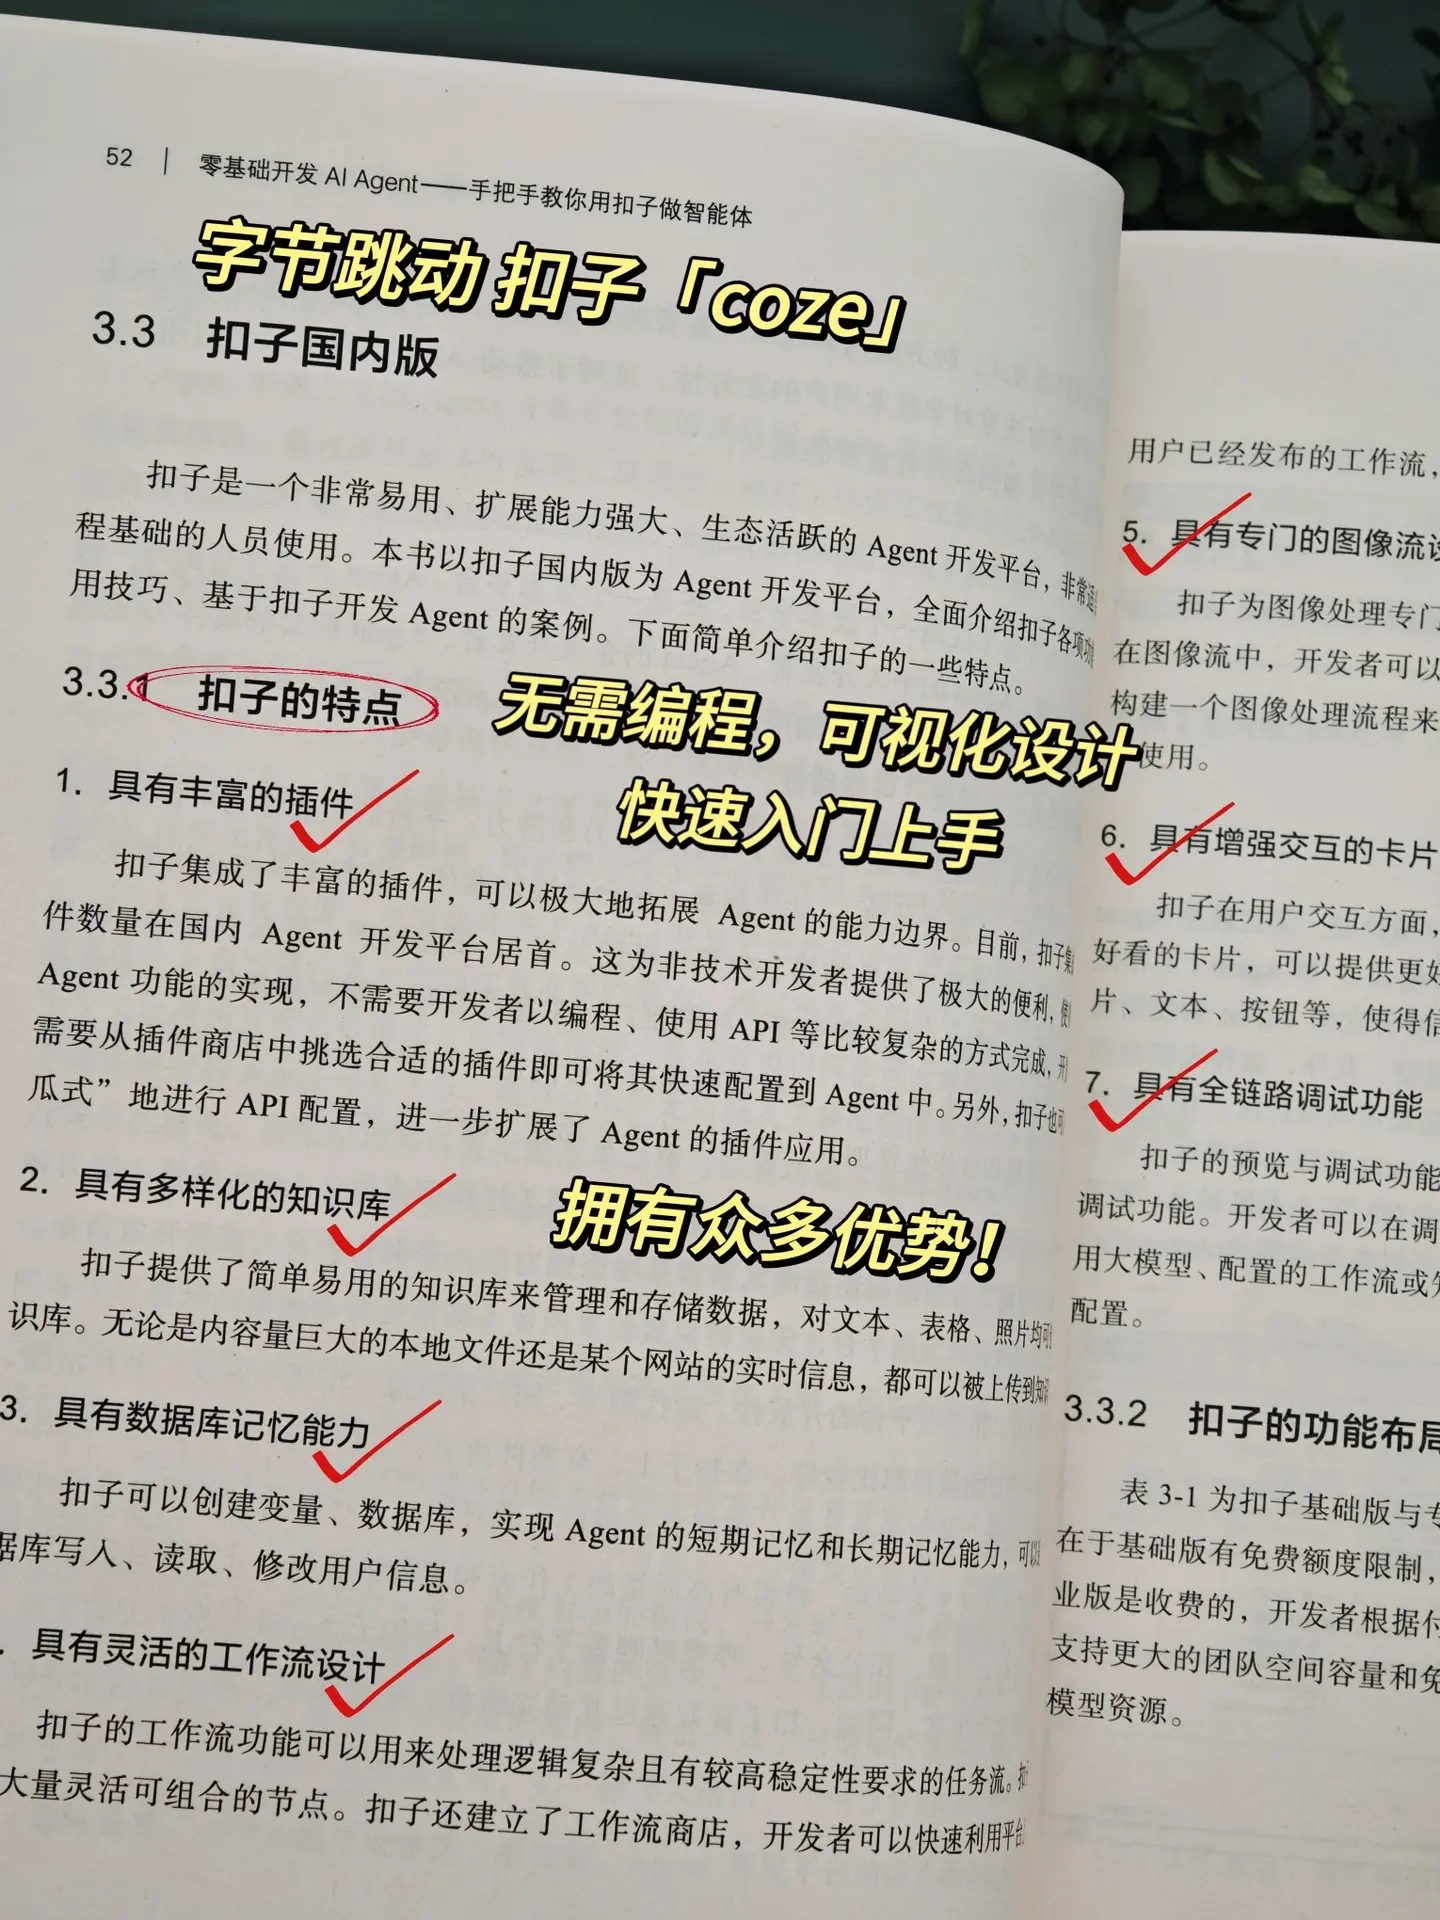 52 | 零基础开发 AI Agent——手把手教你用扣子做智能体
字节跳动 扣子「coze」
3.3 扣子国内版
扣子是一个非常易用、扩展能力强大、生态活跃的 Agent 开发平台，非常适
程基础的人员使用。本书以扣子国内版为 Agent 开发平台，全面介绍扣子各项功
用技巧、基于扣子开发 Agent 的案例。下面简单介绍扣子的一些特点。
3.3.1 扣子的特点
无需编程，可视化设计
快速入门上手
1. 具有丰富的插件
扣子集成了丰富的插件，可以极大地拓展 Agent 的能力边界。目前，扣子集
件数量在国内 Agent 开发平台居首。这为非技术开发者提供了极大的便利，使
Agent 功能的实现，不需要开发者以编程、使用 API 等比较复杂的方式完成，
需要从插件商店中挑选合适的插件即可将其快速配置到 Agent 中。另外，扣子也可
瓜式”地进行 API 配置，进一步扩展了 Agent 的插件应用。
2. 具有多样化的知识库
拥有众多优势！
扣子提供了简单易用的知识库来管理和存储数据，对文本、表格、照片均可
识库。无论是内容量巨大的本地文件还是某个网站的实时信息，都可以被上传到知
3. 具有数据库记忆能力
扣子可以创建变量、数据库，实现 Agent 的短期记忆和长期记忆能力，可以
据库写入、读取、修改用户信息。
. 具有灵活的工作流设计
扣子的工作流功能可以用来处理逻辑复杂且有较高稳定性要求的任务流。扣
大量灵活可组合的节点。扣子还建立了工作流商店，开发者可以快速利用平台
用户已经发布的工作流，
5. 具有专门的图像流设
扣子为图像处理专门
在图像流中，开发者可以
构建一个图像处理流程来
使用。
6. 具有增强交互的卡片
扣子在用户交互方面，
好看的卡片，可以提供更好
片、文本、按钮等，使得信
7. 具有全链路调试功能
扣子的预览与调试功能
调试功能。开发者可以在调
用大模型、配置的工作流或知
配置。
3.3.2 扣子的功能布局
表 3-1 为扣子基础版与专
在于基础版有免费额度限制，
业版是收费的，开发者根据付
支持更大的团队空间容量和免
模型资源。